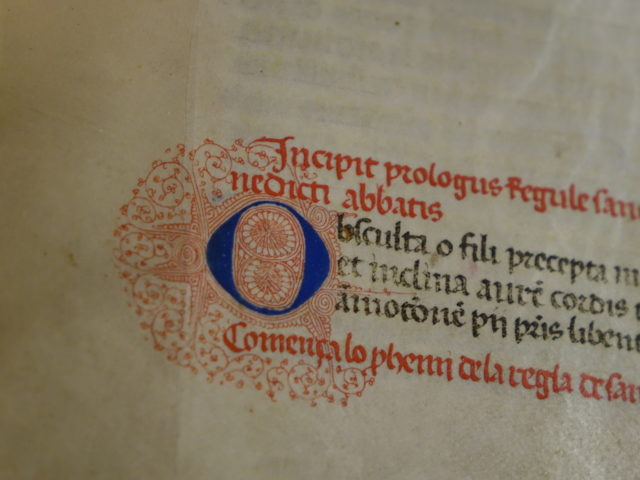 Incipit prologus Regule san
nedicti abbatis
Obsculta o fili precepta m
et inclina aurē cordis t
āmotōnē pij pr̄is libent
Comença lo phemi de la regla de san